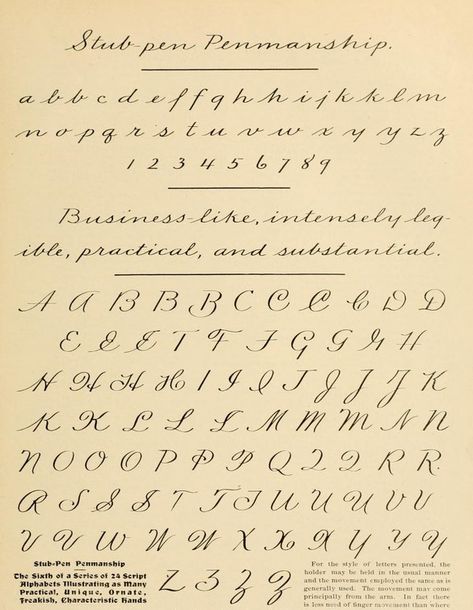 Stub-pen Penmanship.
a b b c d e f f g h h i j k k l m
n o p q r s t u v w x y y z z
1 2 3 4 5 6 7 8 9
Business-like, intensely leg-
ible, practical, and substantial.
A A B B B C C C C D D
E E E T F F G G G H H
H H H H I I I J J J J K
K K L L L M M M N N
N O O O P P P Q Q Q R R.
R S S S T T T U U U V V
V V U W W W X X X Y Y Y
Z Z Z Z
Stub-Pen Penmanship
The Sixth of a Series of 24 Script
Alphabets Illustrating as Many
Practical, Unique, Ornate,
Freakish, Characteristic Hands
For the style of letters presented, the
holder may be held in the usual manner
and the movement employed the same as is
generally used. The movement may come
principally from the arm. In fact there
is less need of finger movement than where